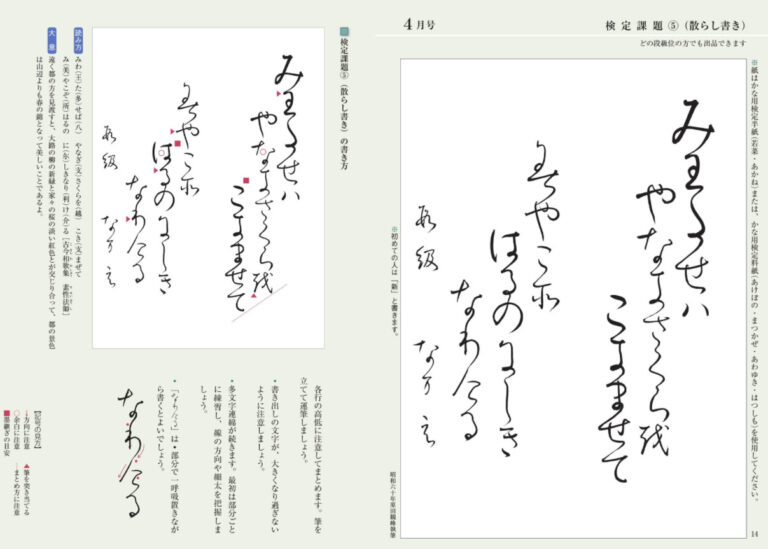 4月号
検定課題⑤(散らし書き)
どの段級位の方でも出品できます
※紙はかな用検定半紙(若菜・あかね)または、かな用検定料紙(あけぼの・まつかぜ・あわゆき・はつしも)を使用してください。
みわたせハ
やなきさくら越
こきませて
みやこ所
はるのにしき
なりける
段級 なまえ
※初めての人は「新」と書きます。
昭和六十年原田観峰執筆
14
検定課題⑤(散らし書き)の書き方
みわたせハ
やなきさくら越
こきませて
みやこ所
はるのにしき
なりける
段級 なまえ
読み方
みわ(王)た(多)せば(八) やなぎ(支)さくらを(越) こき(支)まぜて
み(美)やこぞ(所)はるの に(尓)しきなり(利)け(介)る〔古今和歌集 素性法師〕
大意
遠く都の方を見渡すと、大路の柳の新緑と家々の桜の淡い紅色とが交じり合って、都の景色
は山辺よりも春の錦となって美しいことであるよ。
各行の高低に注意してまとめます。筆を
立てて運筆しましょう。
・書き出しの文字が、大きくなり過ぎない
ように注意しましょう。
・多文字連綿が続きます。最初は部分ごと
に練習し、線の方向や細太を把握しま
しょう。
・「なりける」は・部分で一呼吸置きなが
ら書くとよいでしょう。
なりける
【記号の見方】
→方向に注意
○余白に注意
■墨継ぎの目安
▲筆を突き当てる
―まとめ方に注意